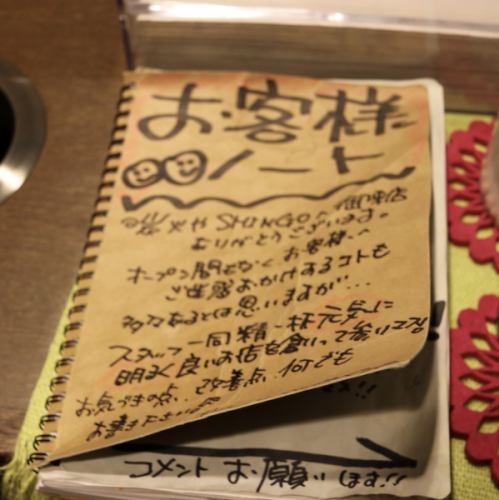 お客様
ノート
炭火や SHINGOへ 御来店
ありがとうございます。
オープン間もなく お客様へ
ご迷惑おかけするコトも
多々あるとは思いますが…
スタッフ一同 精一杯 元気に
明るく良いお店を創って参ります
お気づきの点、改善点、何でも
お書きください
コメント お願いします!!